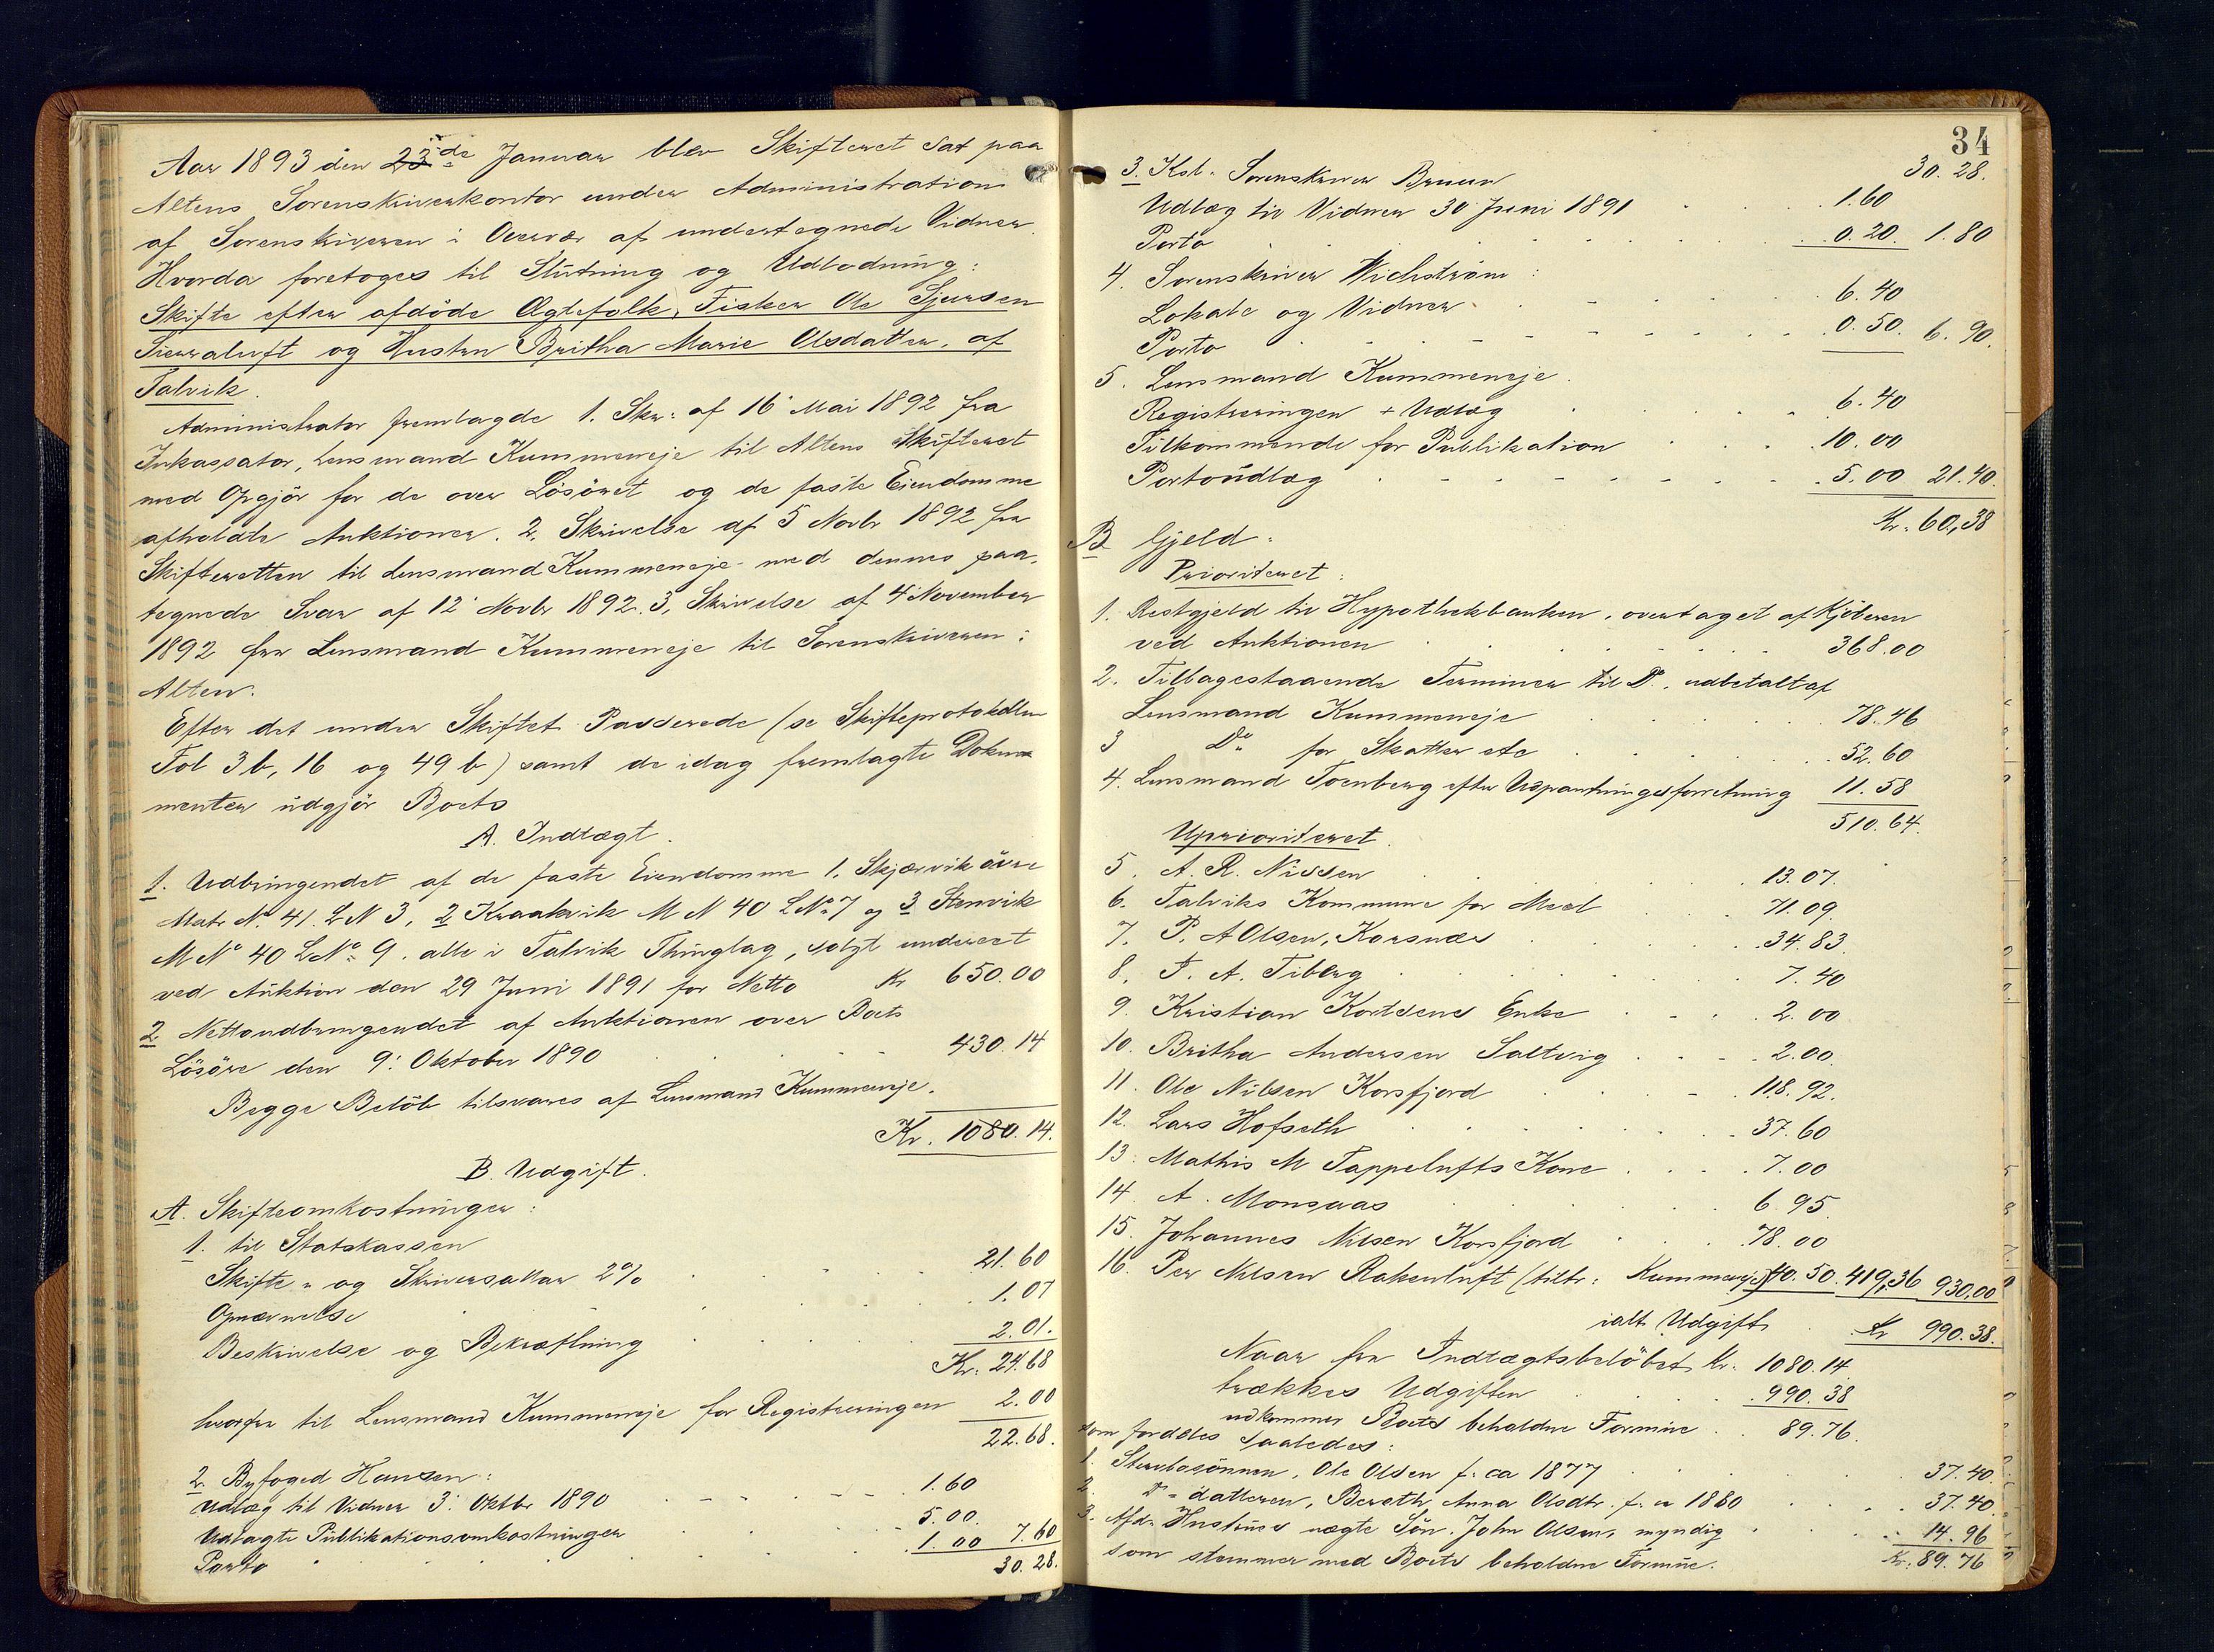 Aar 1893 den 23de Januar blev Skifteret sat paa
Altens Sorenskriverkontor under Administration
af Sorenskriveren i Overvær af undertegnede Vidner.
Hvorda foretoges til Slutning og Udlodning:
Skifte efter afdöde Ægtefolk, Fisker Ole Sjursen
Tieraluft og Hustru Britha Marie Olsdatter, af
Talvik.
Administrator fremlagde 1. Skr: af 16' Mai 1892 fra
Inkassator, Lensmand Kummeneje til Altens Skifteret
med Opgjör for de over Lösöret og de faste Eiendomme
afholdte Auktioner. 2, Skrivelse af 5 Novbr 1892 fra
Skifteretten til Lensmand Kummeneje med dennes paa-
tegnede Svar af 12' Novbr 1892. 3, Skrivelse af 4' November
1892 fra Lensmand Kummeneje til Sorenskriveren i
Alten.
Efter det under Skiftet Passerede (se Skifteprotokollen
Fol 3b, 16 og 49 b) samt de idag fremlagte Doku-
menter udgjör Boets
A. Indtægt.
1. Udbringendet af de faste Eiendomme 1. Skjærvik övre
Matr No. 41. L N 3, 2 Kraakvik M N 40 L No 7 og 3 Stenvik
M No 40 L No 9. alle i Talvik Thinglag, solgt underet
ved Auktion den 29 Juni 1891 for Netto Kr 650.00
2 Nettoudbringendet af Auktionen over Boets
Lösöre den 9: Oktober 1890 430.14
Begge Belöb tilsvares af Lensmand Kummeneje.
Kr. 1080.14.
B. Udgift.
A. Skifteomkostninger:
1. til Statskassen
Skifte- og Skriversallar 2% 21.60
Opnævnelse 1.07
Beskrivelse og Bekræftning 2.01.
Kr. 24.68
herfra til Lensmand Kummeneje for Registreringen 2.00
22.68.
2. Byfoged Hansen:
Udlæg til Vidner 3: Oktbr 1890 1.60
Udlagte Publikationsomkostninger 5.00.
Porto 1.00 7.60
30.28.
34
30.28.
3. Kst. Sorenskriver Bruun
Udlæg til Vidner 30 Juni 1891 1.60
Porto 0.20. 1.80
4. Sorenskriver Wichström:
Lokale og Vidner 6.40
Porto 0.50. 6.90.
5. Lensmand Kummeneje.
Registreringen + Udlæg 6.40
Tilkommende for Publikation 10.00
Portoudlæg 5.00 21.40.
Kr. 60,38
B Gjeld:
Prioriteret:
1. Restgjeld til Hypothekbanken, overtaget af Kjöberen
ved Auktionen 368.00
2. Tilbagestaaende Terminer til Do, udbetalt af
Lensmand Kummeneje 78.46
3 Do for Skatter etc 52.60
4. Lensmand Tornberg efter Udpantningsforretning 11.58
510.64.
Uprioriteret.
5. A. R. Nissen 13.07.
6. Talviks Kommune for Meel 71.09.
7. P. A Olsen, Korsnæs 34.83.
8. F. A. Tiberg 7.40
9. Kristian Kortsens Enke 2.00
10. Britha Andersen Saltvig 2.00.
11. Ole Nilsen Korsfjord 118.92.
12. Lars Hofseth 37.60
13. Mathis M Tappelufts Kone 7.00
14. A. Monsaas 6.95.
15. Johannes Nilsen Korsfjord 78.00
16. Per Nilsen Rakenluft (tiltr: Kummeneje) 40.50. 419,36 930,00
ialt Udgift Kr 990.38.
Naar fra Indtægtsbelöbet Kr. 1080.14.
trækkes Udgiften 990.38
udkommer Boets beholdne Formue 89.76.
som fordeles saaledes:
1. Stervbosönnen, Ole Olsen f. ca 1877 37.40.
2. Do datteren, Bereth Anna Olsdtr. f. ca 1880 37.40.
3. Afd. Hustrues uægte Sön. John Olsen, myndig 14.96
som stemmer med Boets beholdne Formue. Kr. 89.76